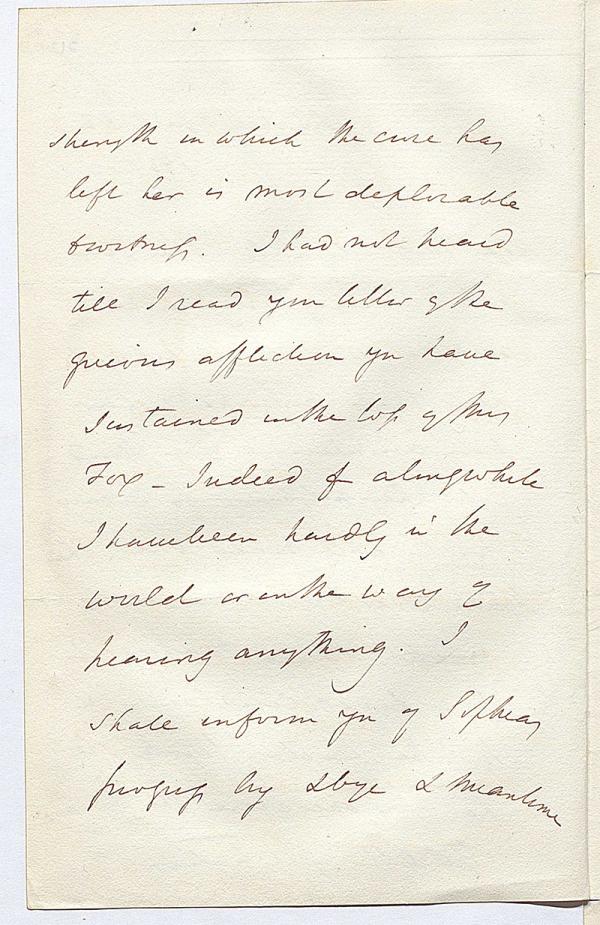 strength in which the cure has
left her is most deplorable
I had not heard
till I read your letter of the
grievous affliction you have
sustained in the loss of Mrs
Fox - Indeed for a long while
I have been hardly in the
world or in the way of
hearing anything. I
shall inform you of Sophias
progress by & bye & meantime